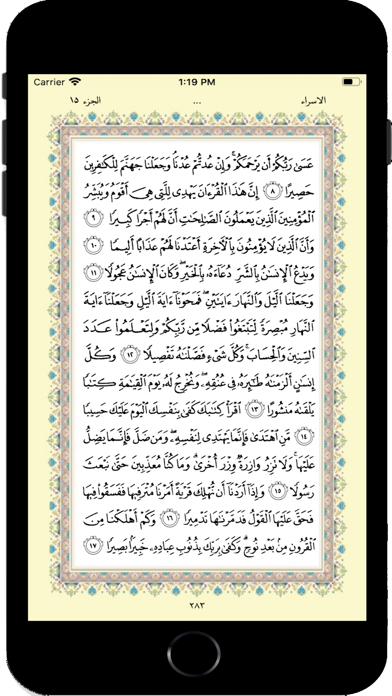 Carrier 1:19 PM
الاسراء ... الجزء ١٥
عَسَىٰ رَبُّكُمْ أَن يَرْحَمَكُمْ ۚ وَإِنْ عُدتُّمْ عُدْنَا ۘ وَجَعَلْنَا جَهَنَّمَ لِلْكَٰفِرِينَ
حَصِيرًا ٨ إِنَّ هَٰذَا ٱلْقُرْءَانَ يَهْدِى لِلَّتِى هِىَ أَقْوَمُ وَيُبَشِّرُ
ٱلْمُؤْمِنِينَ ٱلَّذِينَ يَعْمَلُونَ ٱلصَّٰلِحَٰتِ أَنَّ لَهُمْ أَجْرًا كَبِيرًا ٩
وَأَنَّ ٱلَّذِينَ لَا يُؤْمِنُونَ بِٱلْءَاخِرَةِ أَعْتَدْنَا لَهُمْ عَذَابًا أَلِيمًا ١٠
وَيَدْعُ ٱلْإِنسَٰنُ بِٱلشَّرِّ دُعَآءَهُۥ بِٱلْخَيْرِ ۖ وَكَانَ ٱلْإِنسَٰنُ عَجُولًا ١١
وَجَعَلْنَا ٱلَّيْلَ وَٱلنَّهَارَ ءَايَتَيْنِ ۖ فَمَحَوْنَآ ءَايَةَ ٱلَّيْلِ وَجَعَلْنَآ ءَايَةَ
ٱلنَّهَارِ مُبْصِرَةً لِّتَبْتَغُوا۟ فَضْلًا مِّن رَّبِّكُمْ وَلِتَعْلَمُوا۟ عَدَدَ
ٱلسِّنِينَ وَٱلْحِسَابَ ۚ وَكُلَّ شَىْءٍ فَصَّلْنَٰهُ تَفْصِيلًا ١٢ وَكُلَّ
إِنسَٰنٍ أَلْزَمْنَٰهُ طَٰٓئِرَهُۥ فِى عُنُقِهِۦ ۖ وَنُخْرِجُ لَهُۥ يَوْمَ ٱلْقِيَٰمَةِ كِتَٰبًا
يَلْقَىٰهُ مَنشُورًا ١٣ ٱقْرَأْ كِتَٰبَكَ كَفَىٰ بِنَفْسِكَ ٱلْيَوْمَ عَلَيْكَ حَسِيبًا
١٤ مَّنِ ٱهْتَدَىٰ فَإِنَّمَا يَهْتَدِى لِنَفْسِهِۦ ۖ وَمَن ضَلَّ فَإِنَّمَا يَضِلُّ
عَلَيْهَا ۚ وَلَا تَزِرُ وَازِرَةٌ وِزْرَ أُخْرَىٰ ۗ وَمَا كُنَّا مُعَذِّبِينَ حَتَّىٰ نَبْعَثَ
رَسُولًا ١٥ وَإِذَآ أَرَدْنَآ أَن نُّهْلِكَ قَرْيَةً أَمَرْنَا مُتْرَفِيهَا فَفَسَقُوا۟ فِيهَا
فَحَقَّ عَلَيْهَا ٱلْقَوْلُ فَدَمَّرْنَٰهَا تَدْمِيرًا ١٦ وَكَمْ أَهْلَكْنَا مِنَ
ٱلْقُرُونِ مِنۢ بَعْدِ نُوحٍ ۗ وَكَفَىٰ بِرَبِّكَ بِذُنُوبِ عِبَادِهِۦ خَبِيرًۢا بَصِيرًا ١٧
٢٨٣